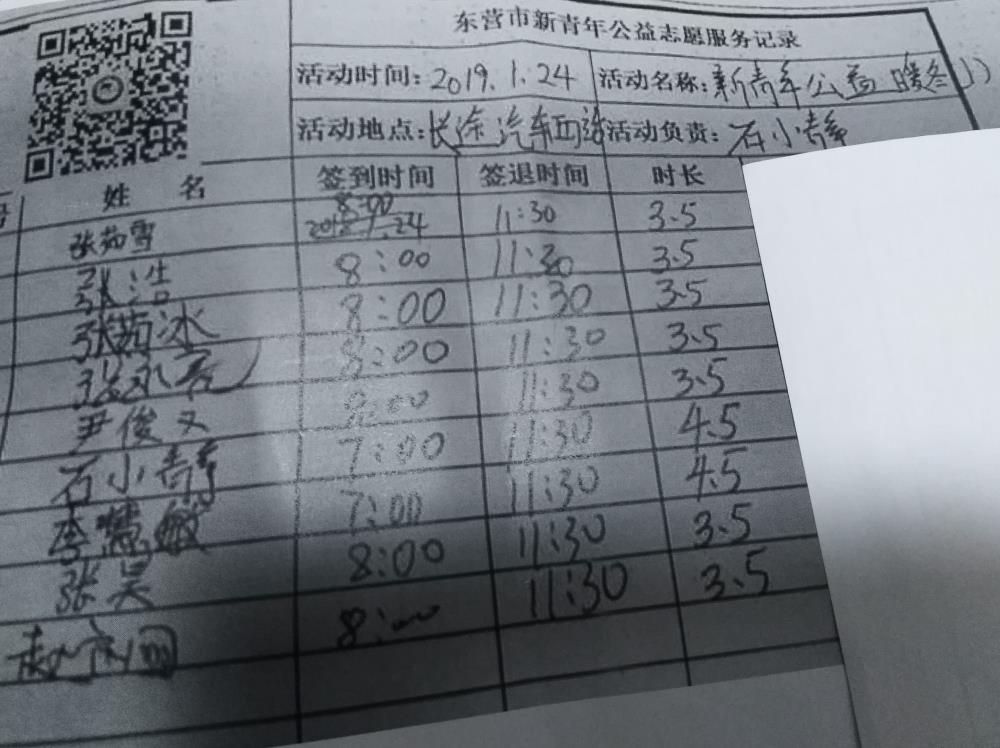 东营市新青年公益志愿服务记录
活动时间：2019.1.24 活动名称：新青年公益暖冬
活动地点：长途汽车西站 活动负责：石小静
姓 名 签到时间 签退时间 时长
张茹雪 8:00 11:30 3.5
张浩 8:00 11:30 3.5
张茹冰 8:00 11:30 3.5
8:00 11:30 3.5
尹俊义 8:00 11:30 3.5
石小静 7:00 11:30 4.5
李慧敏 7:00 11:30 4.5
张昊 8:00 11:30 3.5
8:00 11:30 3.5